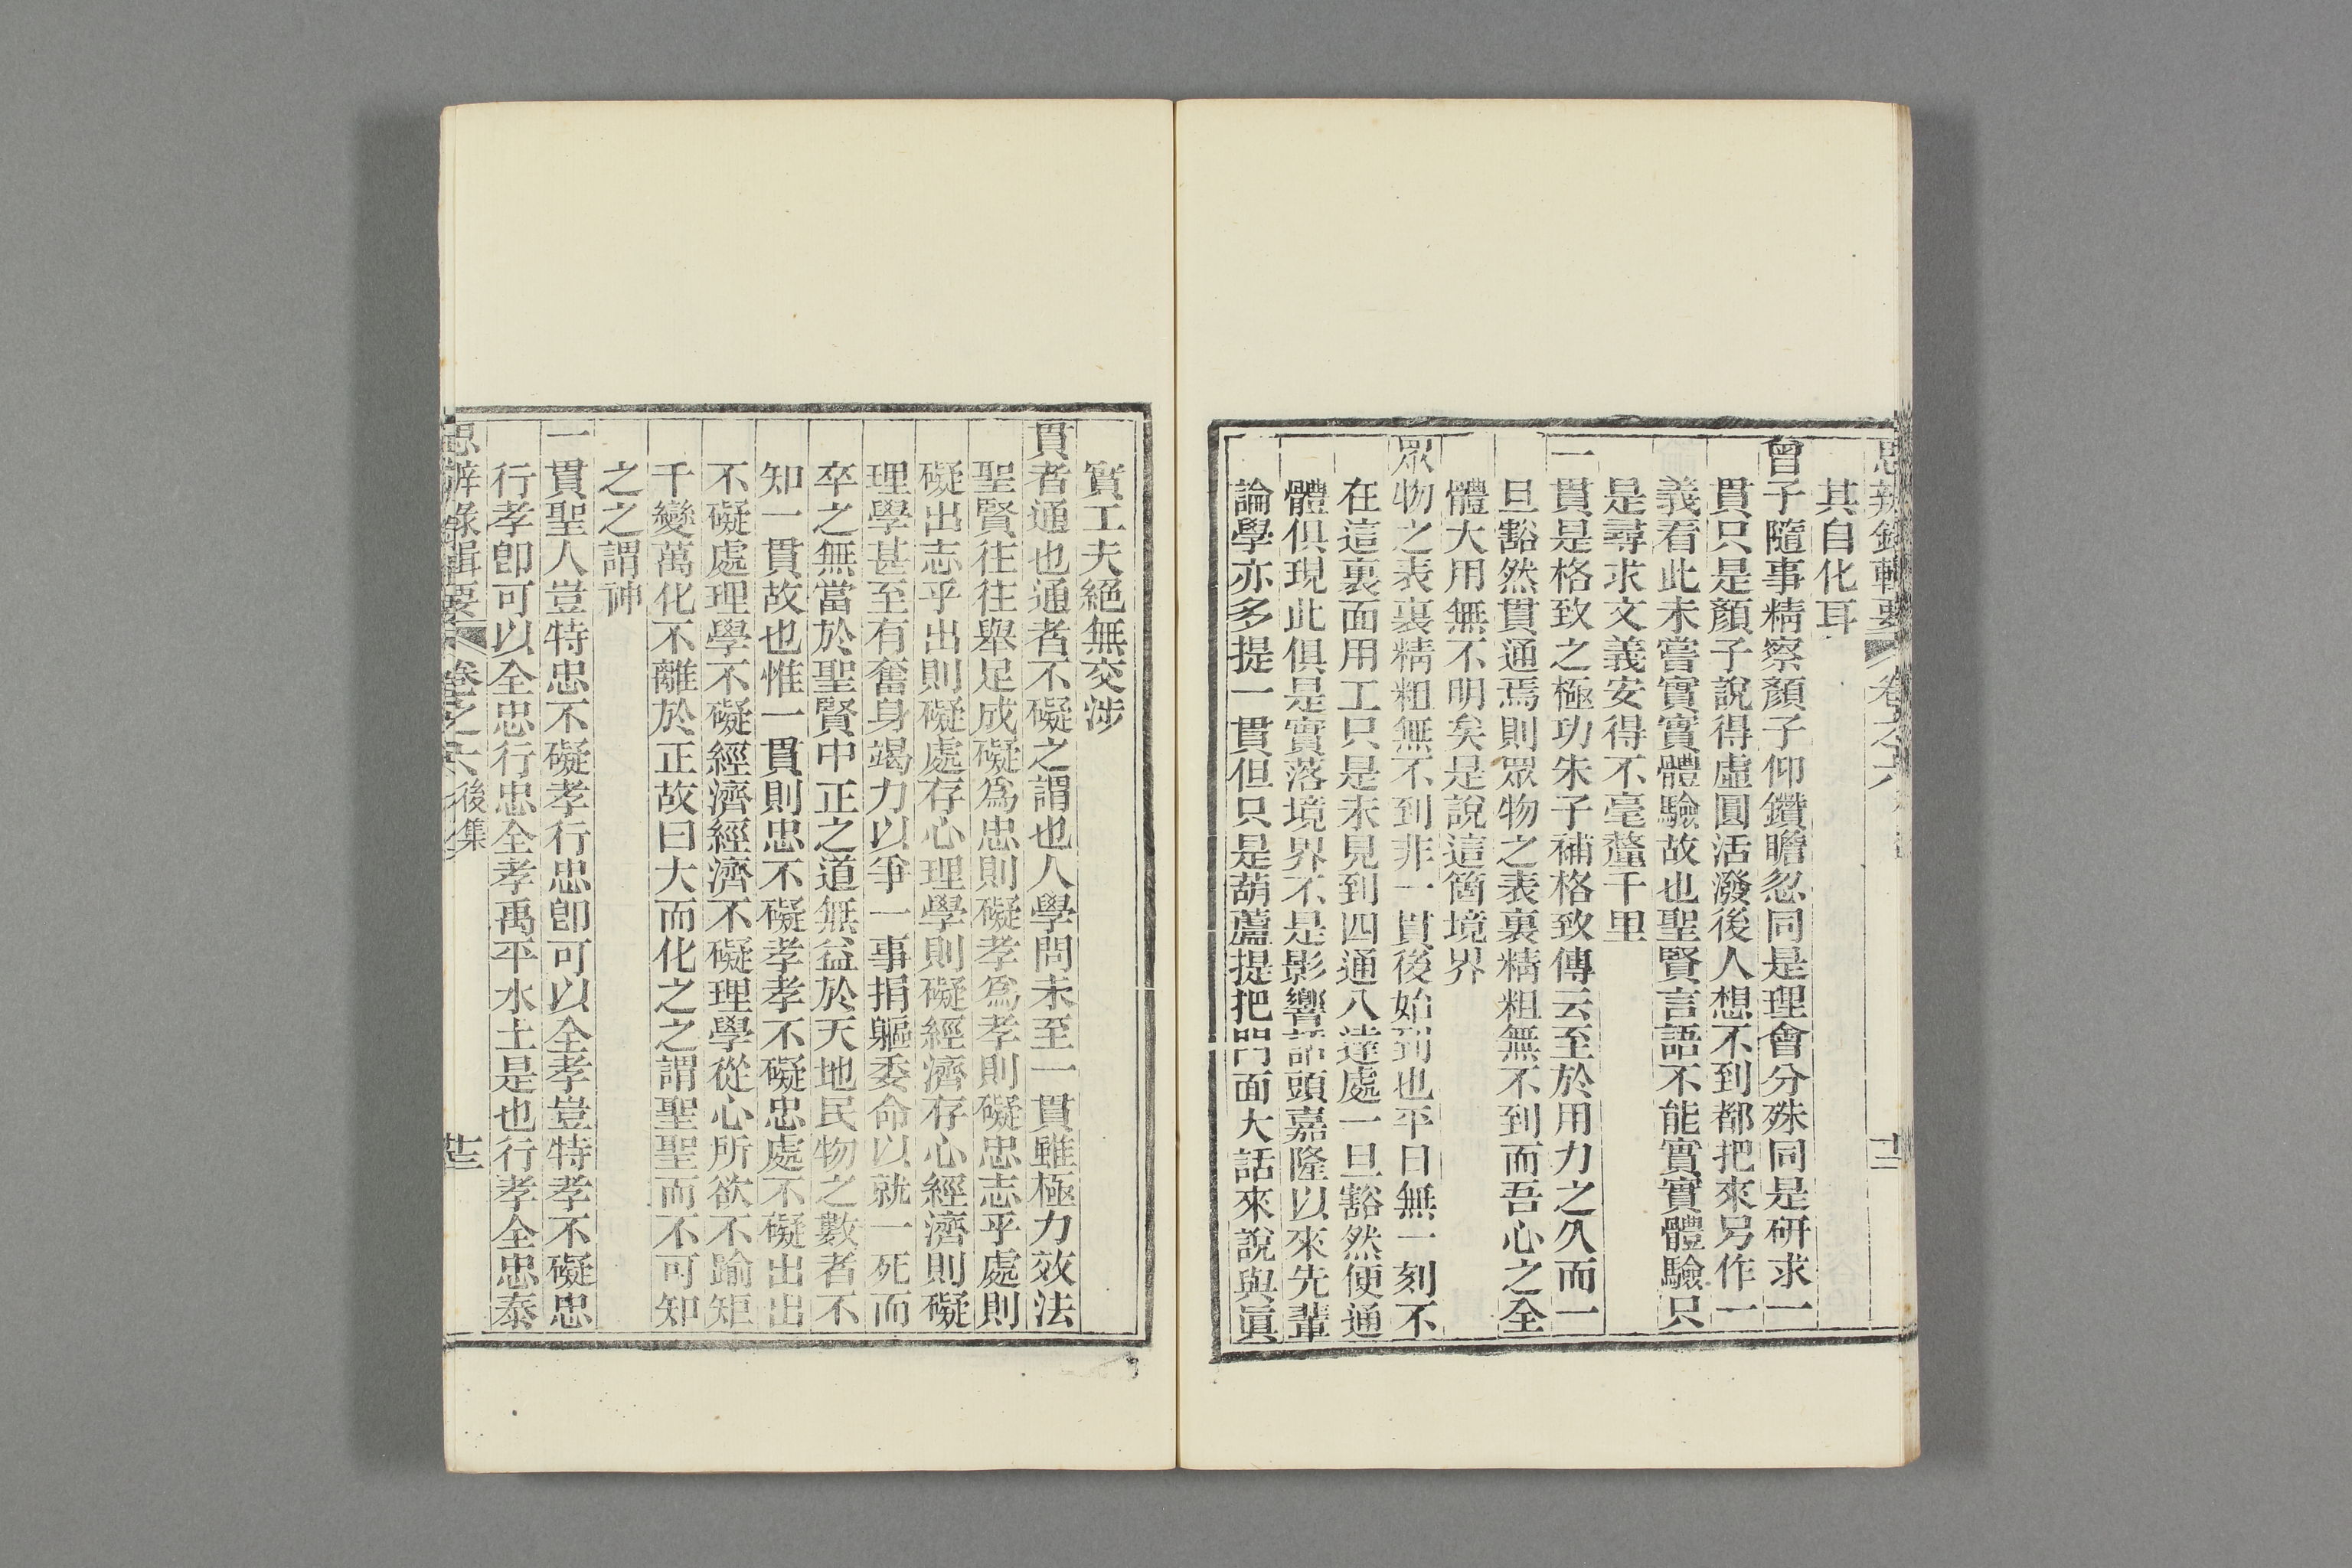 思辨錄輯要 卷之六
其自化耳
曾子隨事精察顏子仰鑽瞻忽同是理會分殊同是研求一
貫只是顏子說得虛圓活潑後人想不到都把來另作一
義看此未嘗實實體驗故也聖賢言語不能實實體驗只
是尋求文義安得不毫釐千里
一貫是格致之極功朱子補格致傳云至於用力之久而一
旦豁然貫通焉則眾物之表裏精粗無不到而吾心之全
體大用無不明矣是說這箇境界
眾物之表裏精粗無不到非一貫後始到也平日無一刻不
在這裏面用工只是未見到四通八達處一旦豁然便通
體俱現此俱是實落境界不是影響話頭嘉隆以來先輩
論學亦多提一貫但只是葫蘆提把門面大話來說與眞
實工夫絕無交涉
貫者通也通者不礙之謂也人學問未至一貫雖極力效法
聖賢往往舉足成礙爲忠則礙孝爲孝則礙忠志乎處則
礙出志乎出則礙處存心理學則礙經濟存心經濟則礙
理學甚至有奮身竭力以爭一事捐軀委命以就一死而
卒之無當於聖賢中正之道無益於天地民物之數者不
知一貫故也惟一貫則忠不礙孝孝不礙忠處不礙出出
不礙處理學不礙經濟經濟不礙理學從心所欲不踰矩
千變萬化不離於正故曰大而化之之謂聖聖而不可知
之之謂神
一貫聖人豈特忠不礙孝行忠卽可以全孝豈特孝不礙忠
行孝卽可以全忠行忠全孝禹平水土是也行孝全忠泰
思辨錄輯要 卷之六 後集